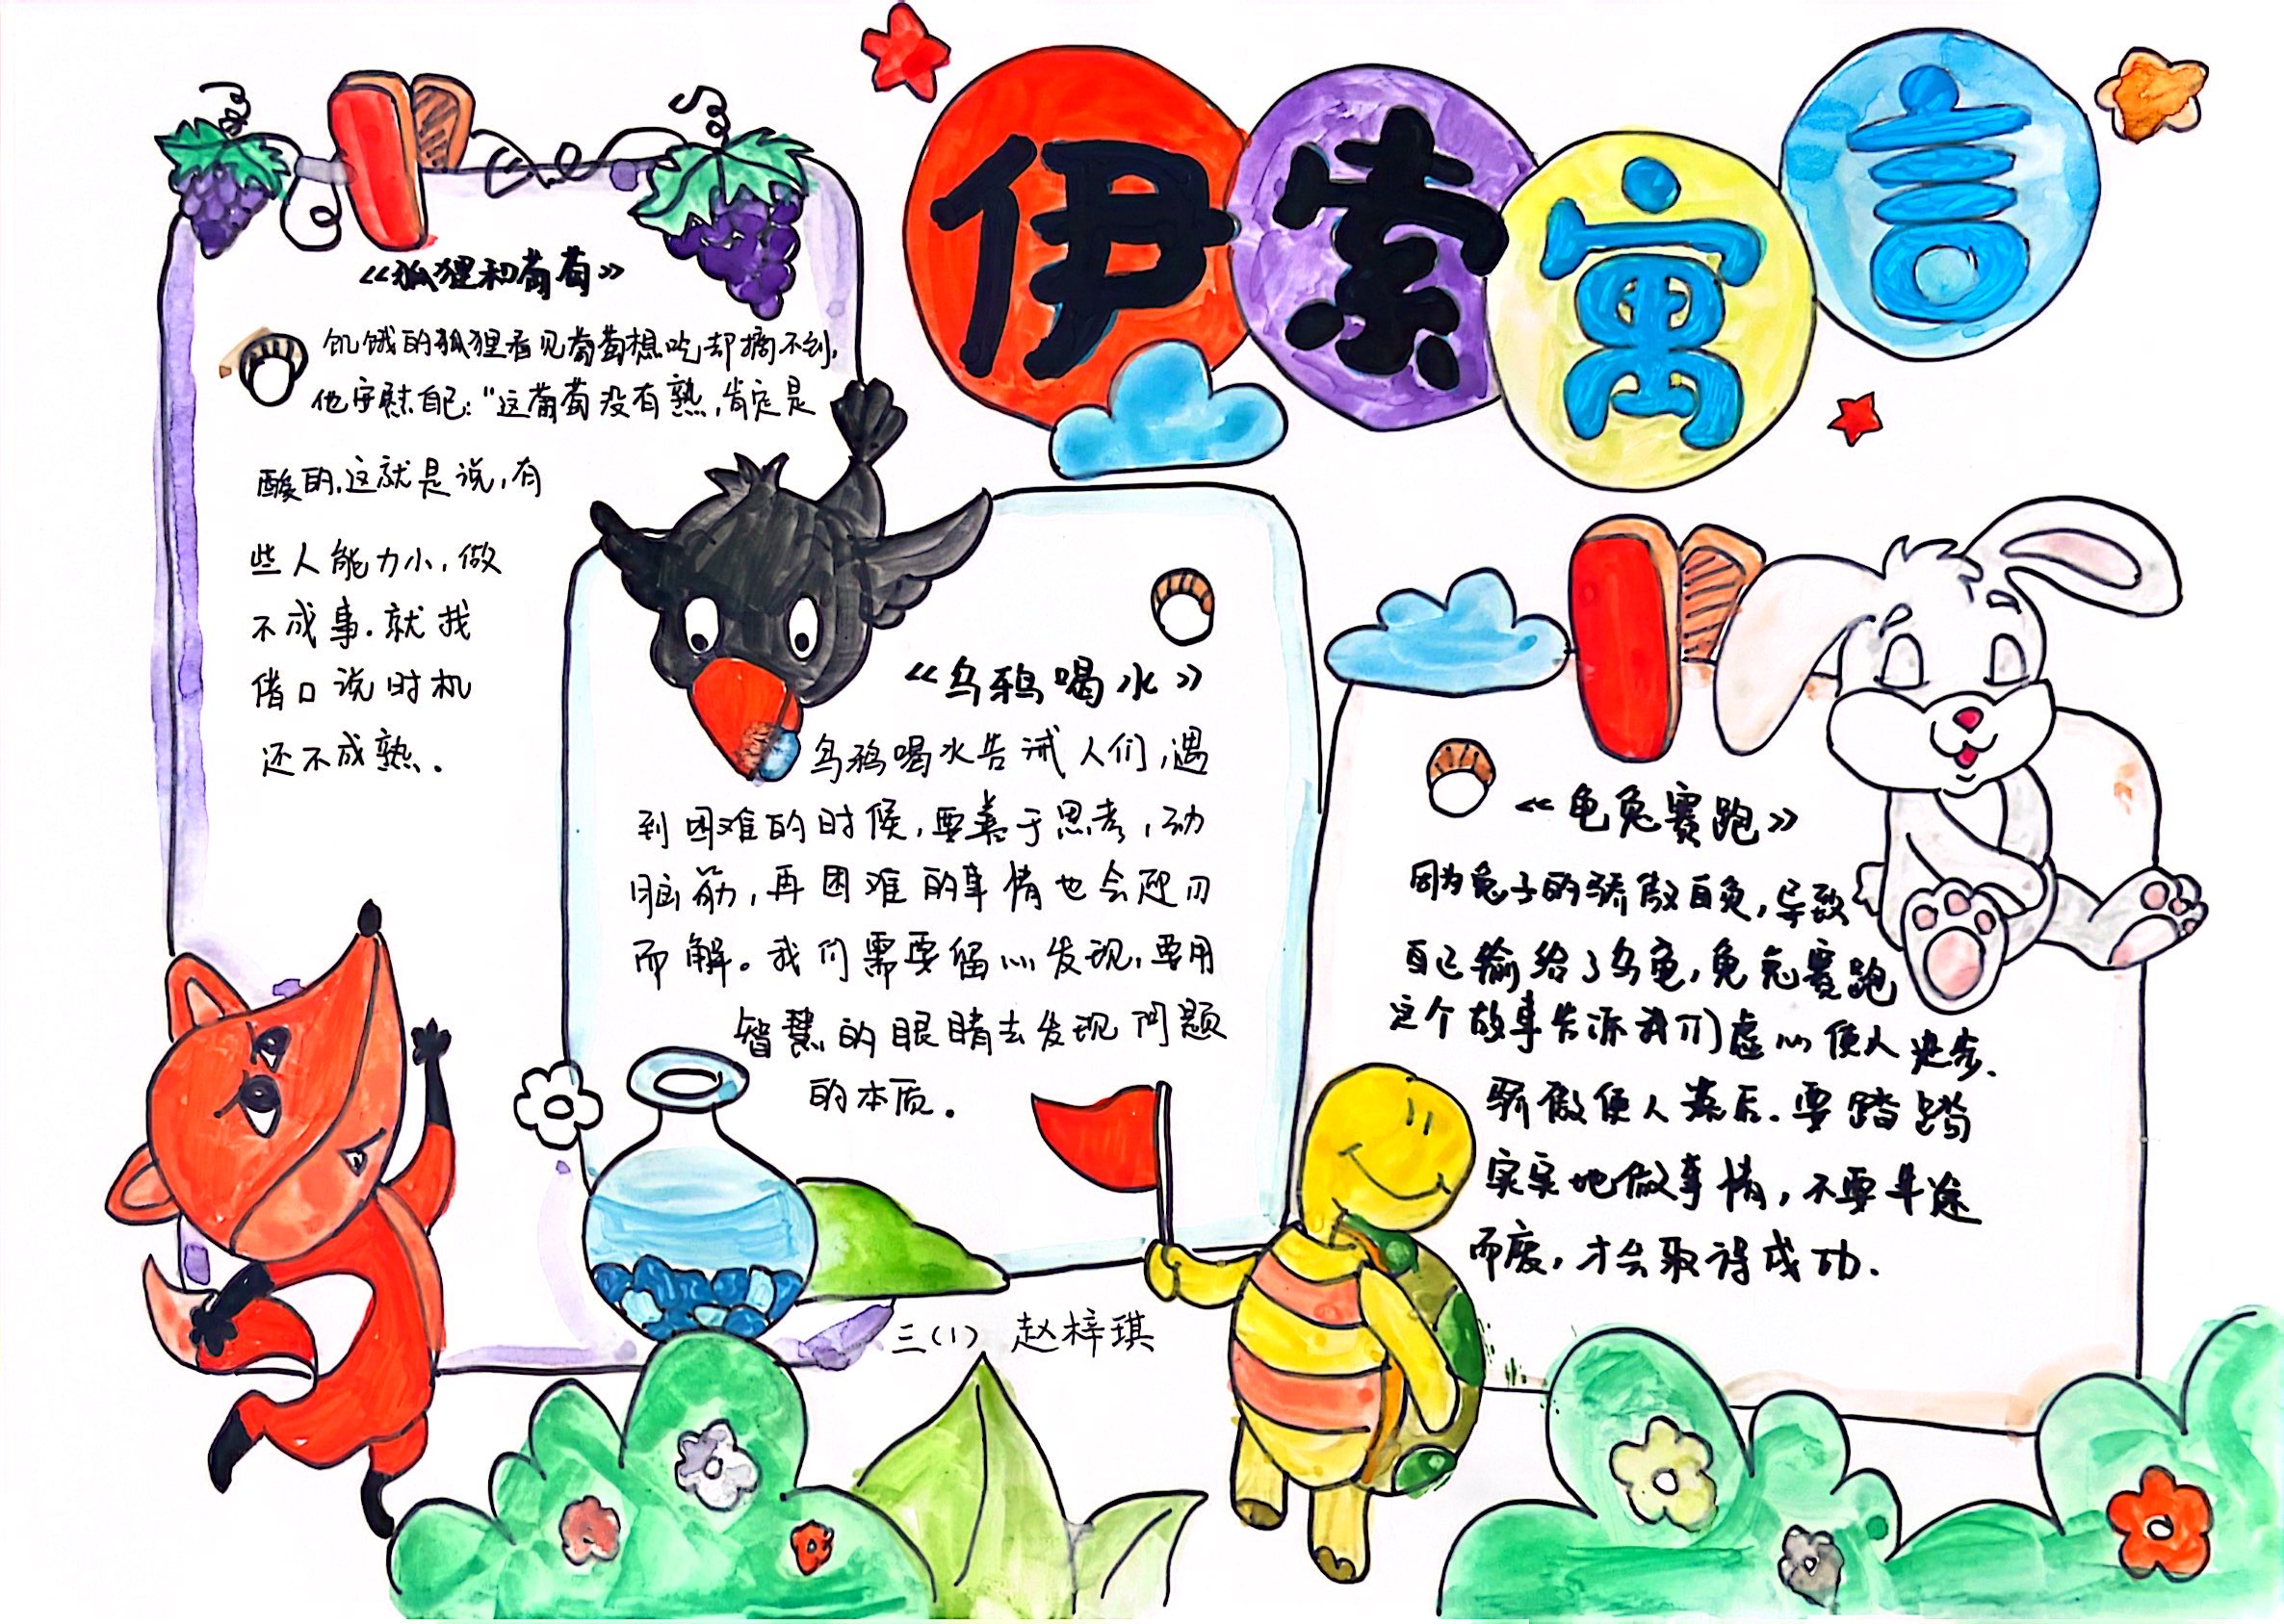 伊索寓言
《狐狸和葡萄》
饥饿的狐狸看见葡萄想吃却摘不到,
他安慰自己:"这葡萄没有熟,肯定是
酸的.这就是说,有
些人能力小,做
不成事.就找
借口说时机
还不成熟.
《乌鸦喝水》
乌鸦喝水告诫人们,遇
到困难的时候,要善于思考,动
脑筋,再困难的事情也会迎刃
而解。我们需要留心发现,要用
智慧的眼睛去发现问题
的本质。
《龟兔赛跑》
因为兔子的骄傲自负,导致
自己输给了乌龟,龟兔赛跑
这个故事告诉我们虚心使人进步.
骄傲使人落后.要踏踏
实实地做事情,不要半途
而废,才会取得成功.
三(1) 赵梓琪